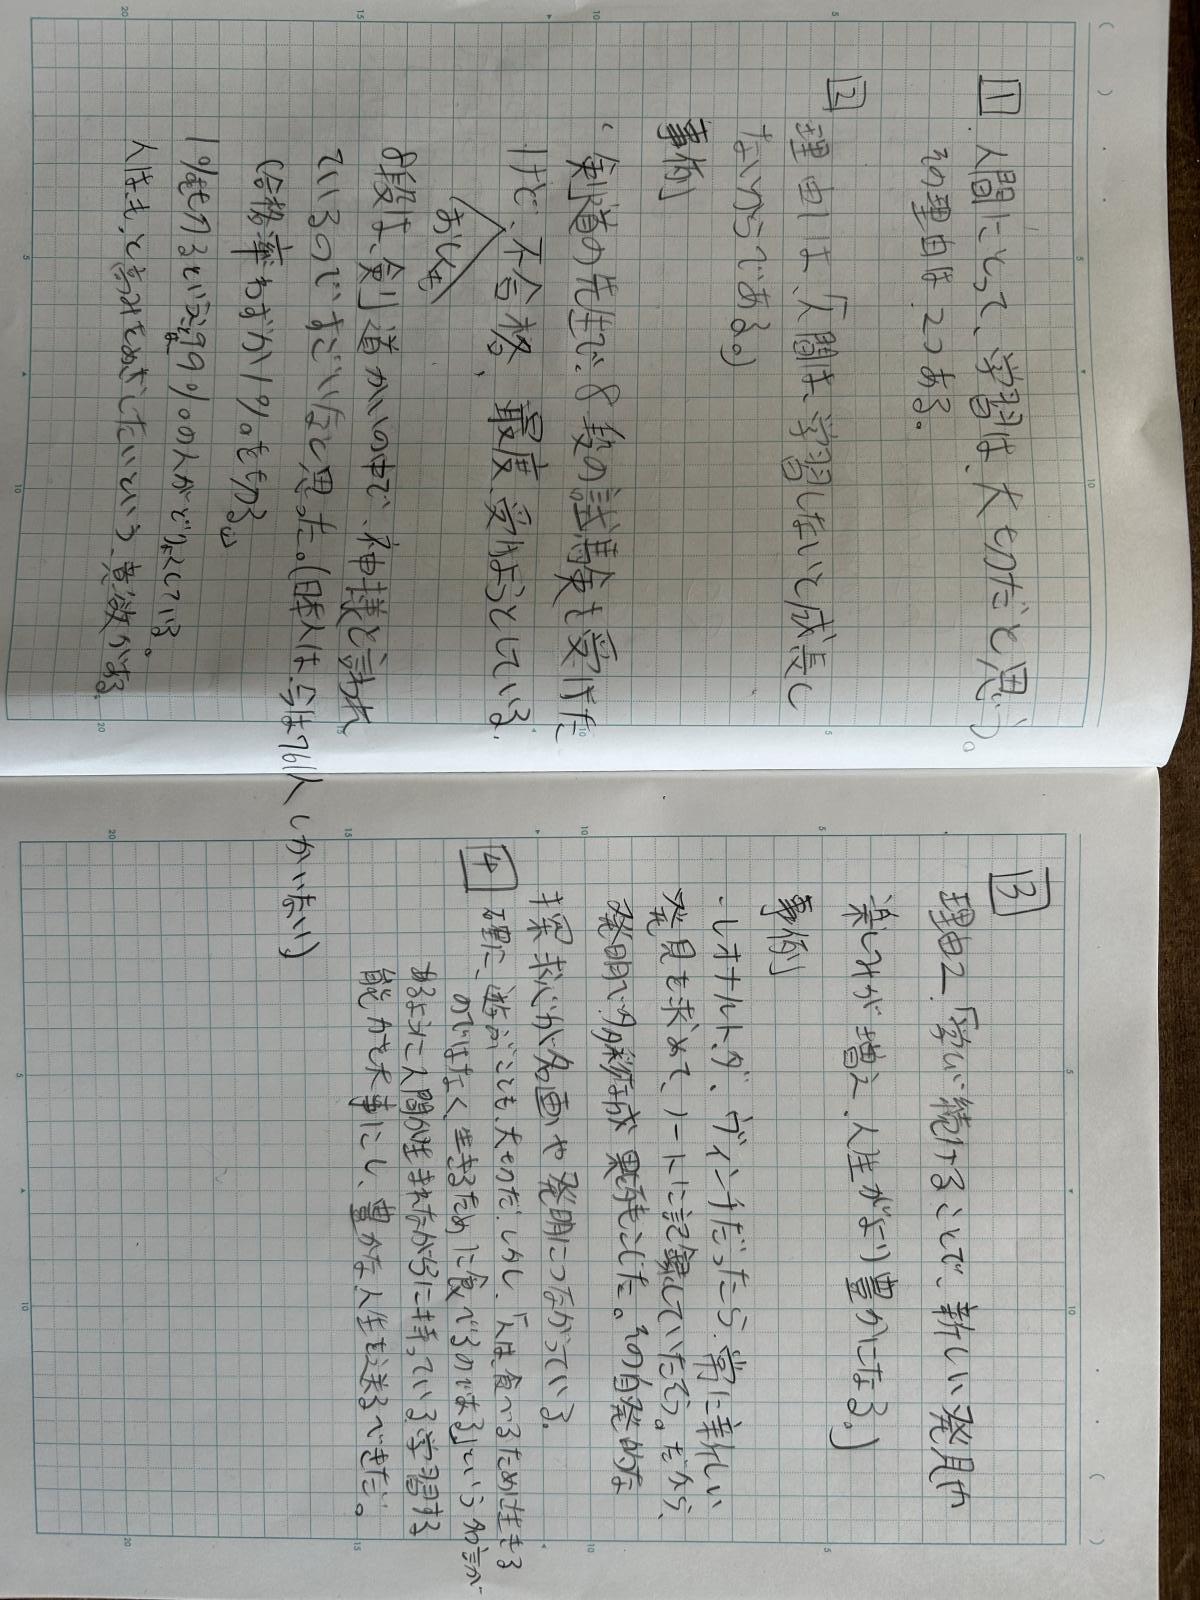 1
人間にとって、学習は、大切だと思う。
その理由は、2つある。
2
理由1は、「人間は、学習しないと成長し
ないからである」
事例
・剣道の先生で、8段の試験を受けた
けど、不合格、最度、受けようとしている。
おしくも
8段は、剣道かいの中で、神様と言われ
ているのですごいなと思った。(日本人は、今は761人しかいない)
合格率わずか1%をもの
1%ものるという 99%の人がどりょくしている。
人は、もっと高みをめざしたいという、意欲がある。
3
理由2、「学び続けることで、新しい発見や
楽しみが増え、人生がより豊かになる。」
事例
・レオナルド、ダ、ヴィンチだったら、常に新しい
発見を求めて、ノートに記録していたそう。だから、
発明で多彩な成果を残した。その自発的な
探求心が名画や発明につながっている。
4
確に、遊ぶことも、大切だ。しかし、「人は、食べるために生きる
のではなく、生きるために食べるのである」という名言が
あるように人間が生まれながらに持っている学習する
能力を大事にし、豊かな人生を送るべきだ。